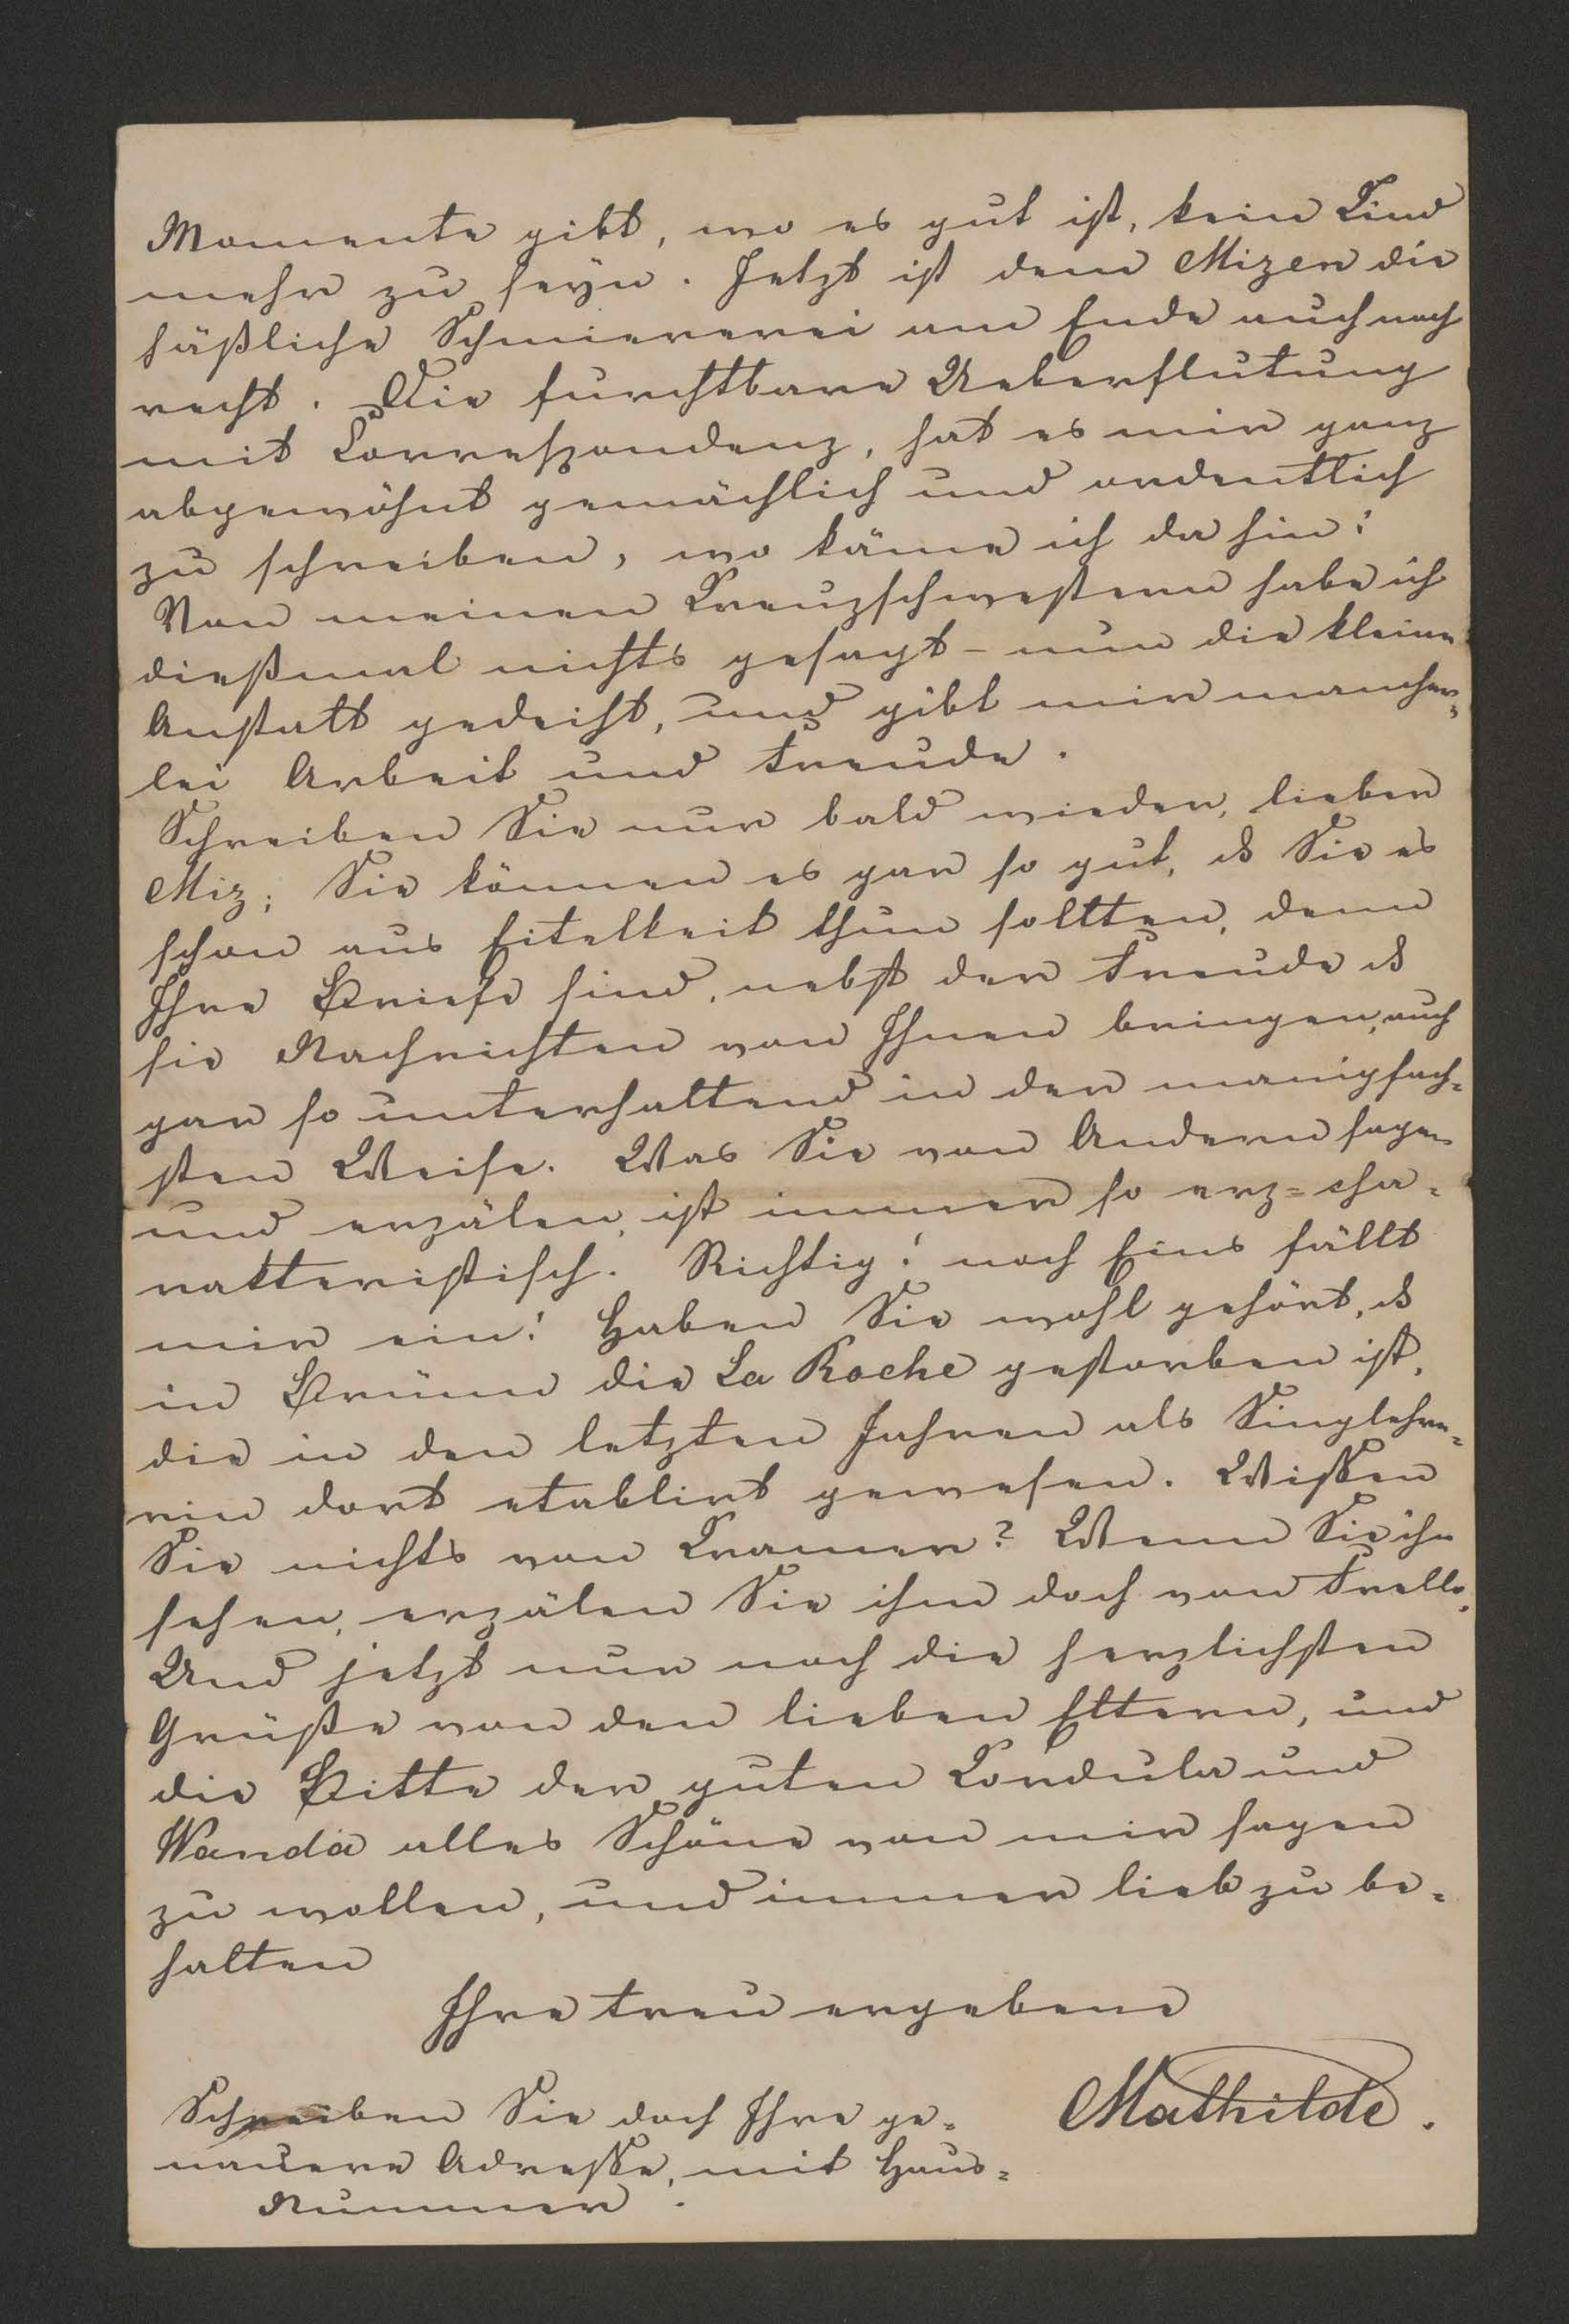 Momente gibt, wo es gut ist, kein Kind
mehr zu seyn. Jetzt ist dem Mizen die
häßliche Schmiererei am Ende auch noch
recht. Die furchtbare Ueberflutung
mit Correspondenz, hat es mir ganz
abgewöhnt gemächlich und ordentlich
zu schreiben, wo käme ich da hin!
Von meinen Kreuzschwestern habe ich
dießmal nichts gesagt – nun die kleine
Anstalt gedeiht, und gibt mir mancher=
lei Arbeit und Freude.
Schreiben Sie nur bald wieder, lieber
Miz; Sie können es gar so gut, dß Sie es
schon aus Eitelkeit thun sollten, denn
Ihre Briefe sind, nebst der Freude dß
sie Nachrichten von Ihnen bringen, auch
gar so unterhaltend in der manigfach=
sten Weise. Was Sie von Andern sagen
und erzälen, ist immer so erz=cha=
rakteristisch. Richtig! noch Eins fällt
mir ein! Haben Sie wohl gehört, dß
in Brünn die La Roche gestorben ist,
die in den letzten Jahren als Singlehre=
rin dort etablirt gewesen. Wissen
Sie nichts von Kramer? Wenn Sie ihn
sehen, erzälen Sie ihm doch von
Und jetzt nur noch die herzlichsten
Grüße von den lieben Eltern, und
die Bitte der guten Cordula und
Wanda alles Schöne von mir sagen
zu wollen, und immer lieb zu be=
halten
Ihre treu ergebene
Mathilde.
Schreiben Sie doch Ihre ge=
nauere Adresse, mit Haus=
Nummer.